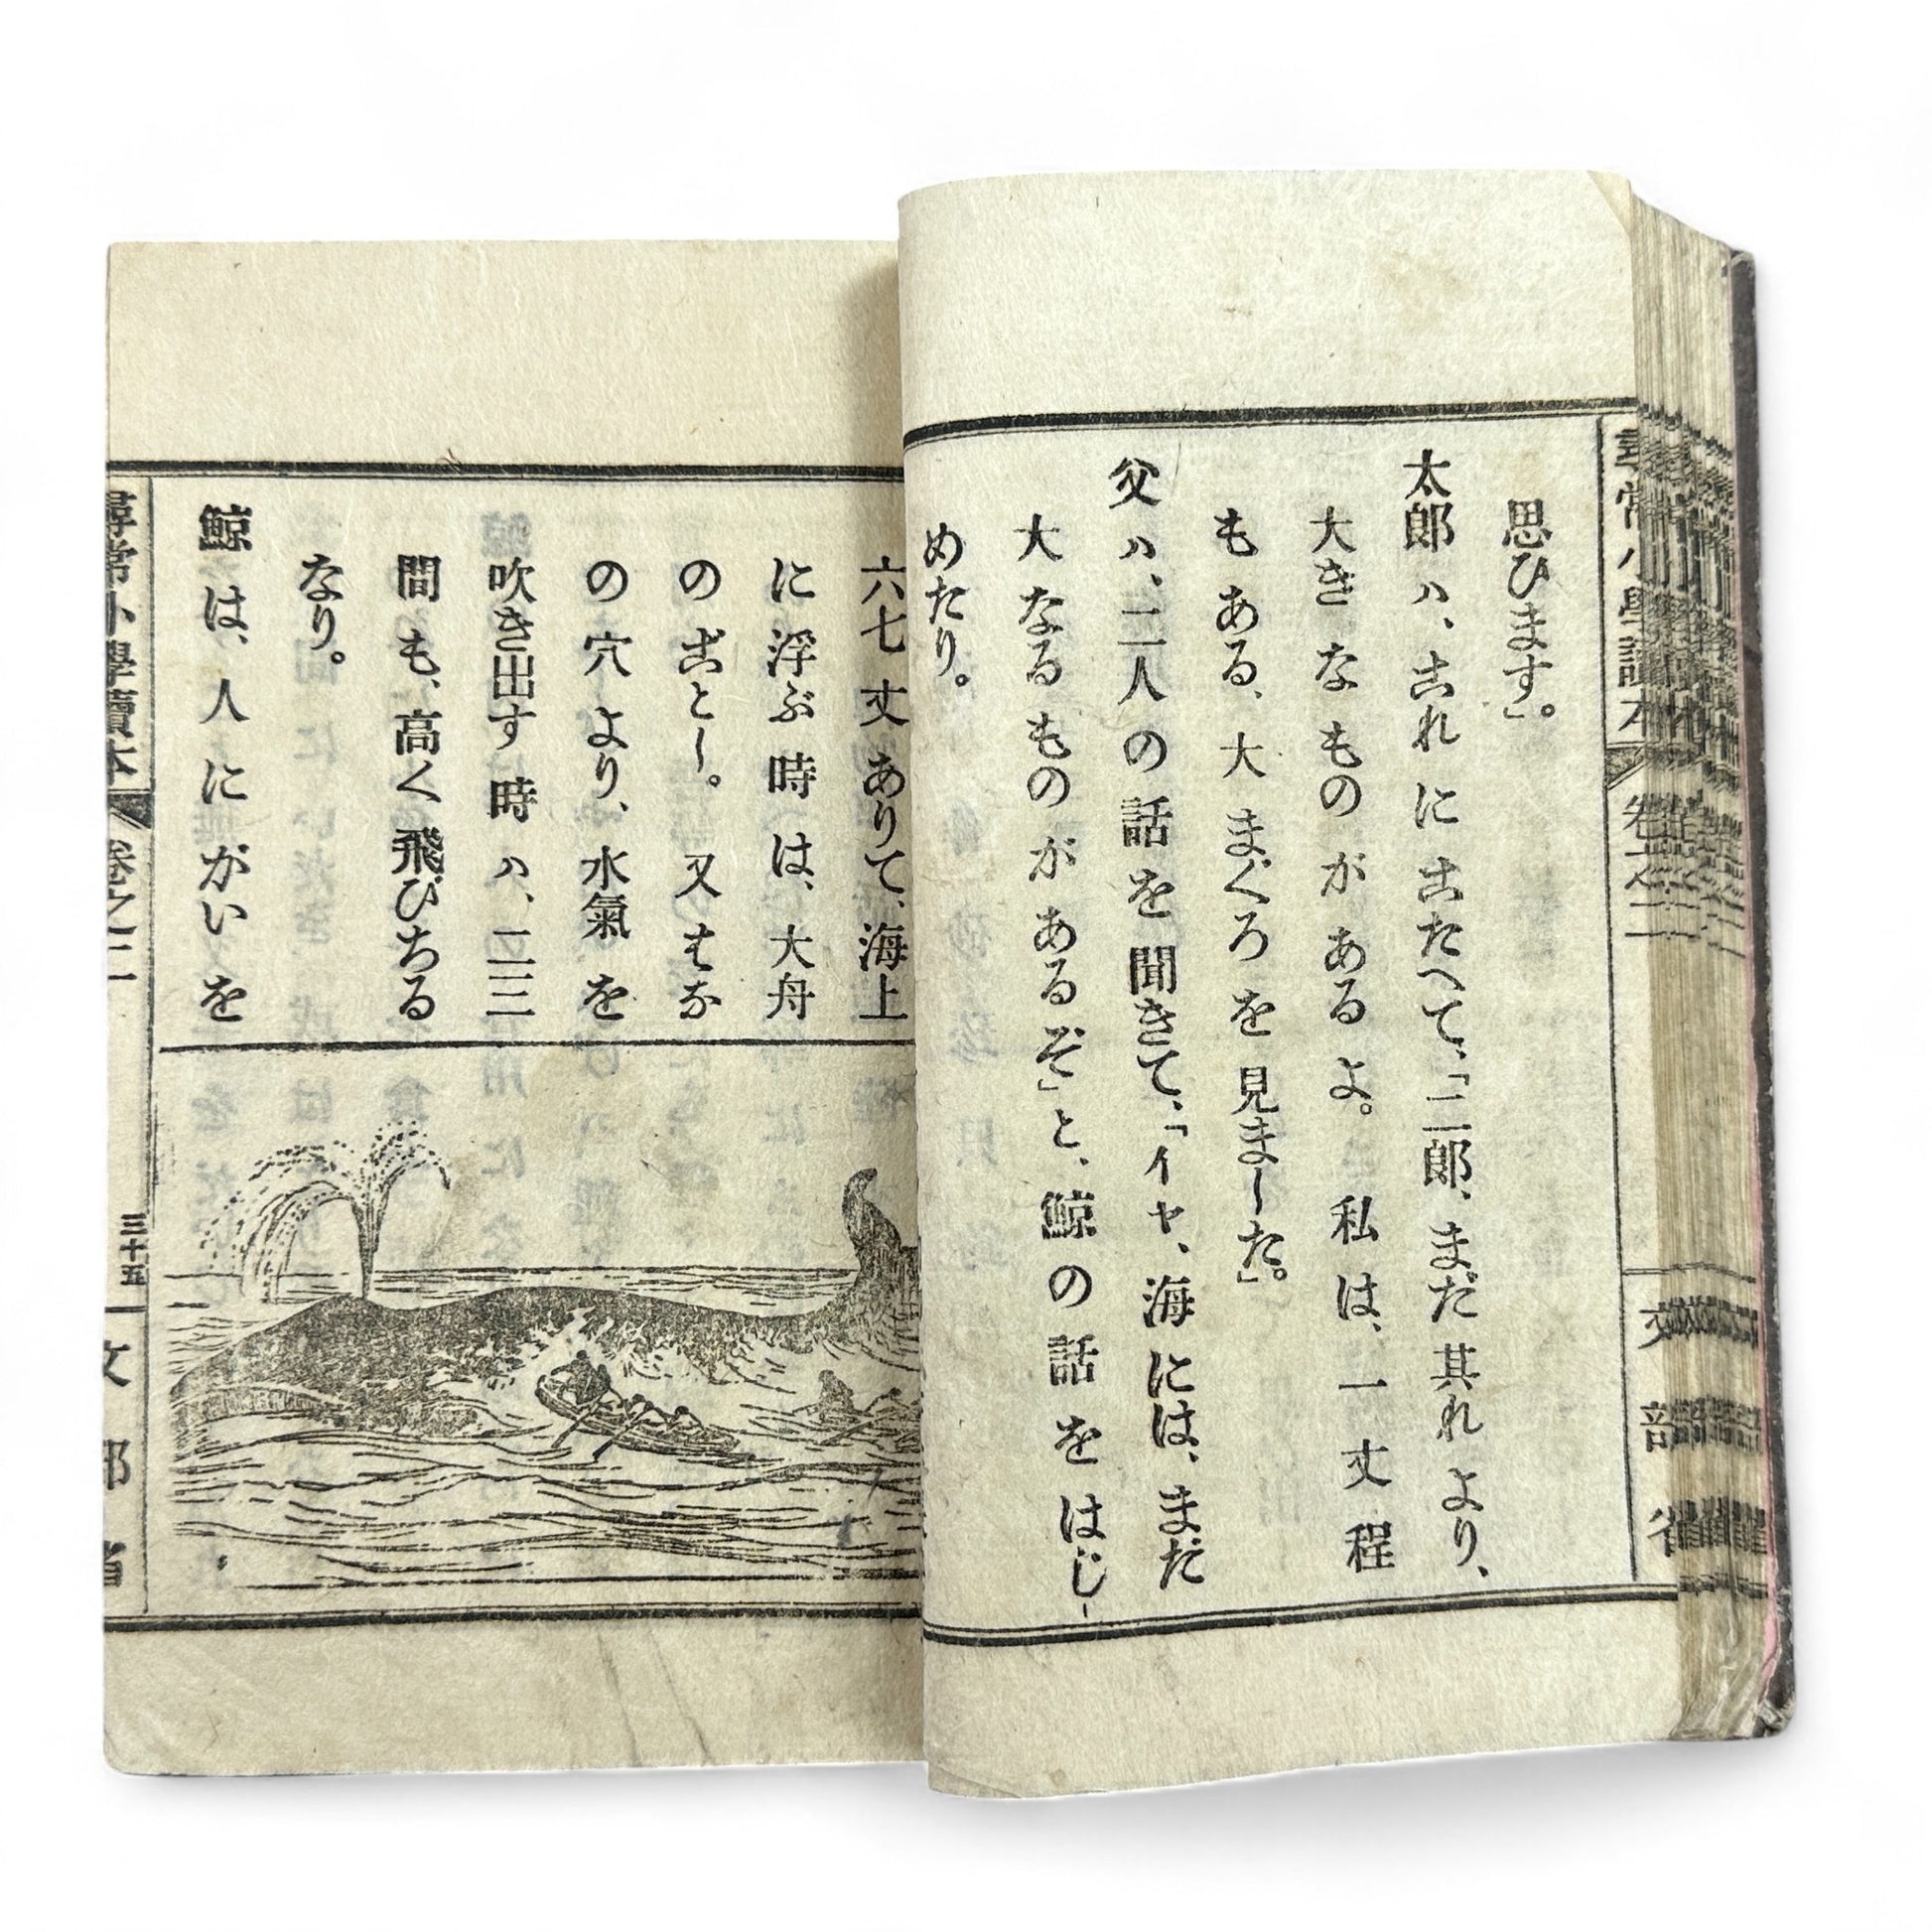 思ひます」。
太郎ハ、古れに古たへて、「二郎、まだ其れより、
大きなものがあるよ。私は、一丈程
もある、大まぐろを見ました」。
父ハ、二人の話を聞きて、「イヤ、海には、まだ
大なるものがあるぞ」と、鯨の話をはじ
めたり。
六七丈ありて、海上
に浮ぶ時は、大舟
の古とし。又せなか
の穴より、水氣を
吹き出す時ハ、二三
間も、高く飛びちる
なり。
鯨は、人にがいを
尋常小學讀本
卷之二
三十五
文部省